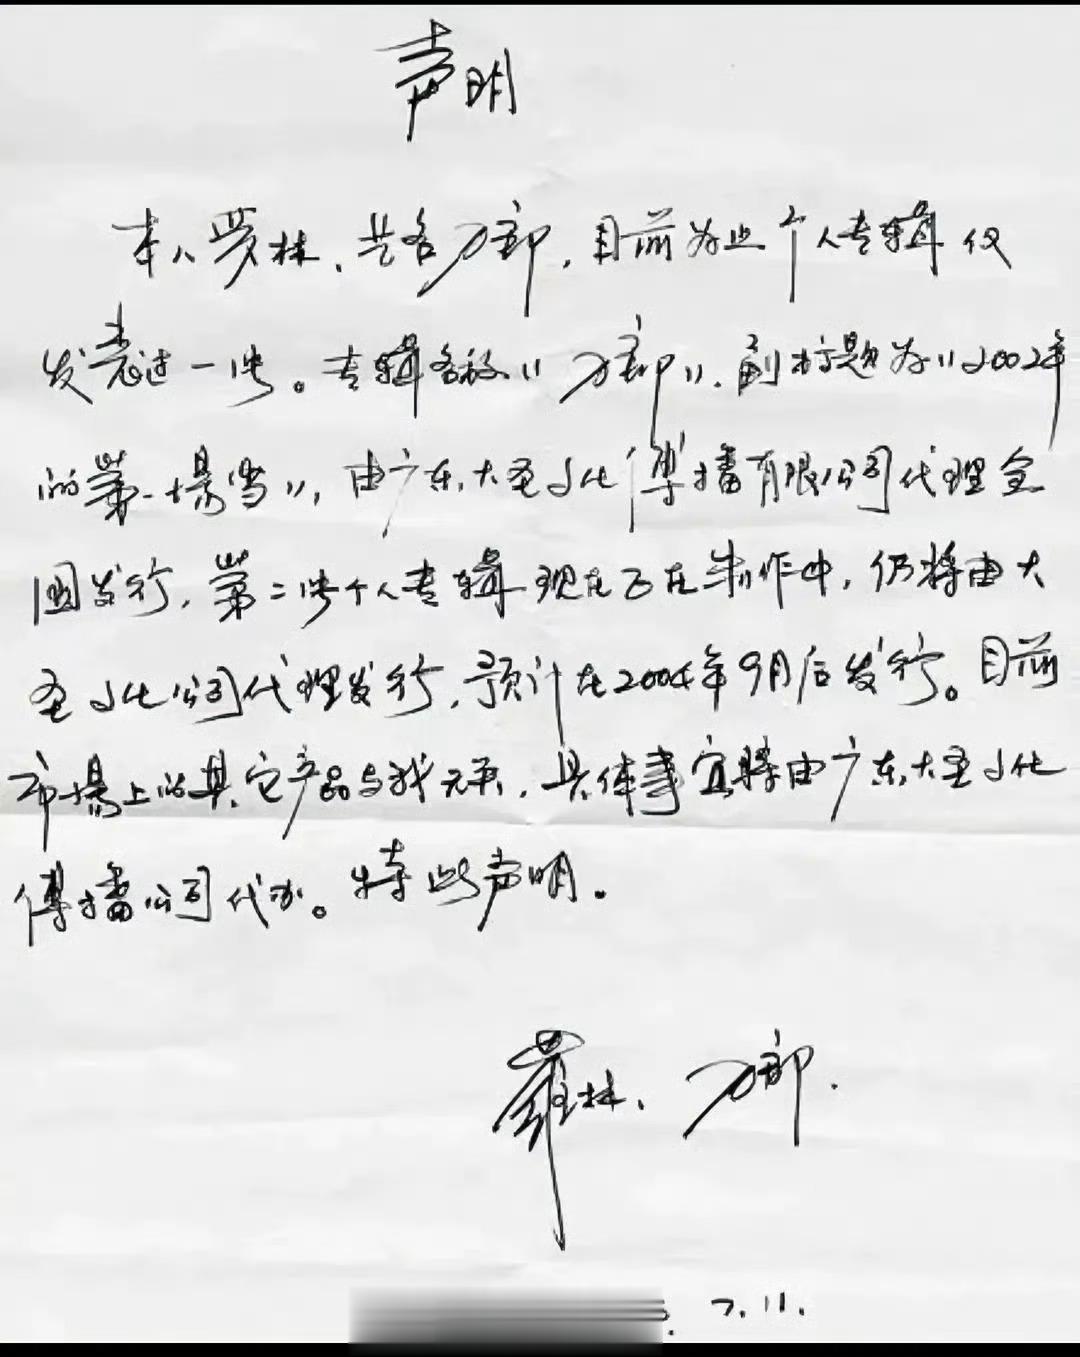 声明
本人罗林、艺名刀郎，目前为止个人专辑仅
发表过一张。专辑名称"刀郎"，副标题为"2002年
的第一场雪"，由广东大圣文化傳播有限公司代理全
国发行，第二张个人专辑现在正在制作中，仍将由大
圣文化公司代理发行，预计在2004年9月后发行。目前
市场上的其它产品与我无关，具体事宜将由广东大圣文化
傳播公司代办。特此声明。
羅林、刀郎.
7.11.